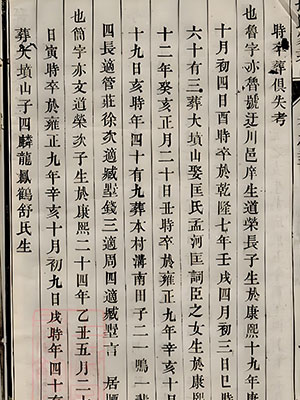 時卒葬俱失考
也魯字亦魯號迂川邑庠生道榮長子生於康熙十九年庚
十月初四日酉時卒於乾隆七年壬戌四月初三日巳時
六十有三葬大墳山娶匡氏孟河匡詞臣之女生於康熙
十二年癸亥正月二十日丑時卒於雍正九年辛亥十月
十九日亥時年四十有九葬本村溝南田子二一鳴一
四長適管莊徐次適臧墅錢三適周四適臧墅言 居
也簡字亦文道榮次子生於康熙二十四年乙丑五月二
日寅時卒於雍正九年辛亥十月初九日戌時年四十有
葬大墳山子四麟龍鳳鶴舒氏生